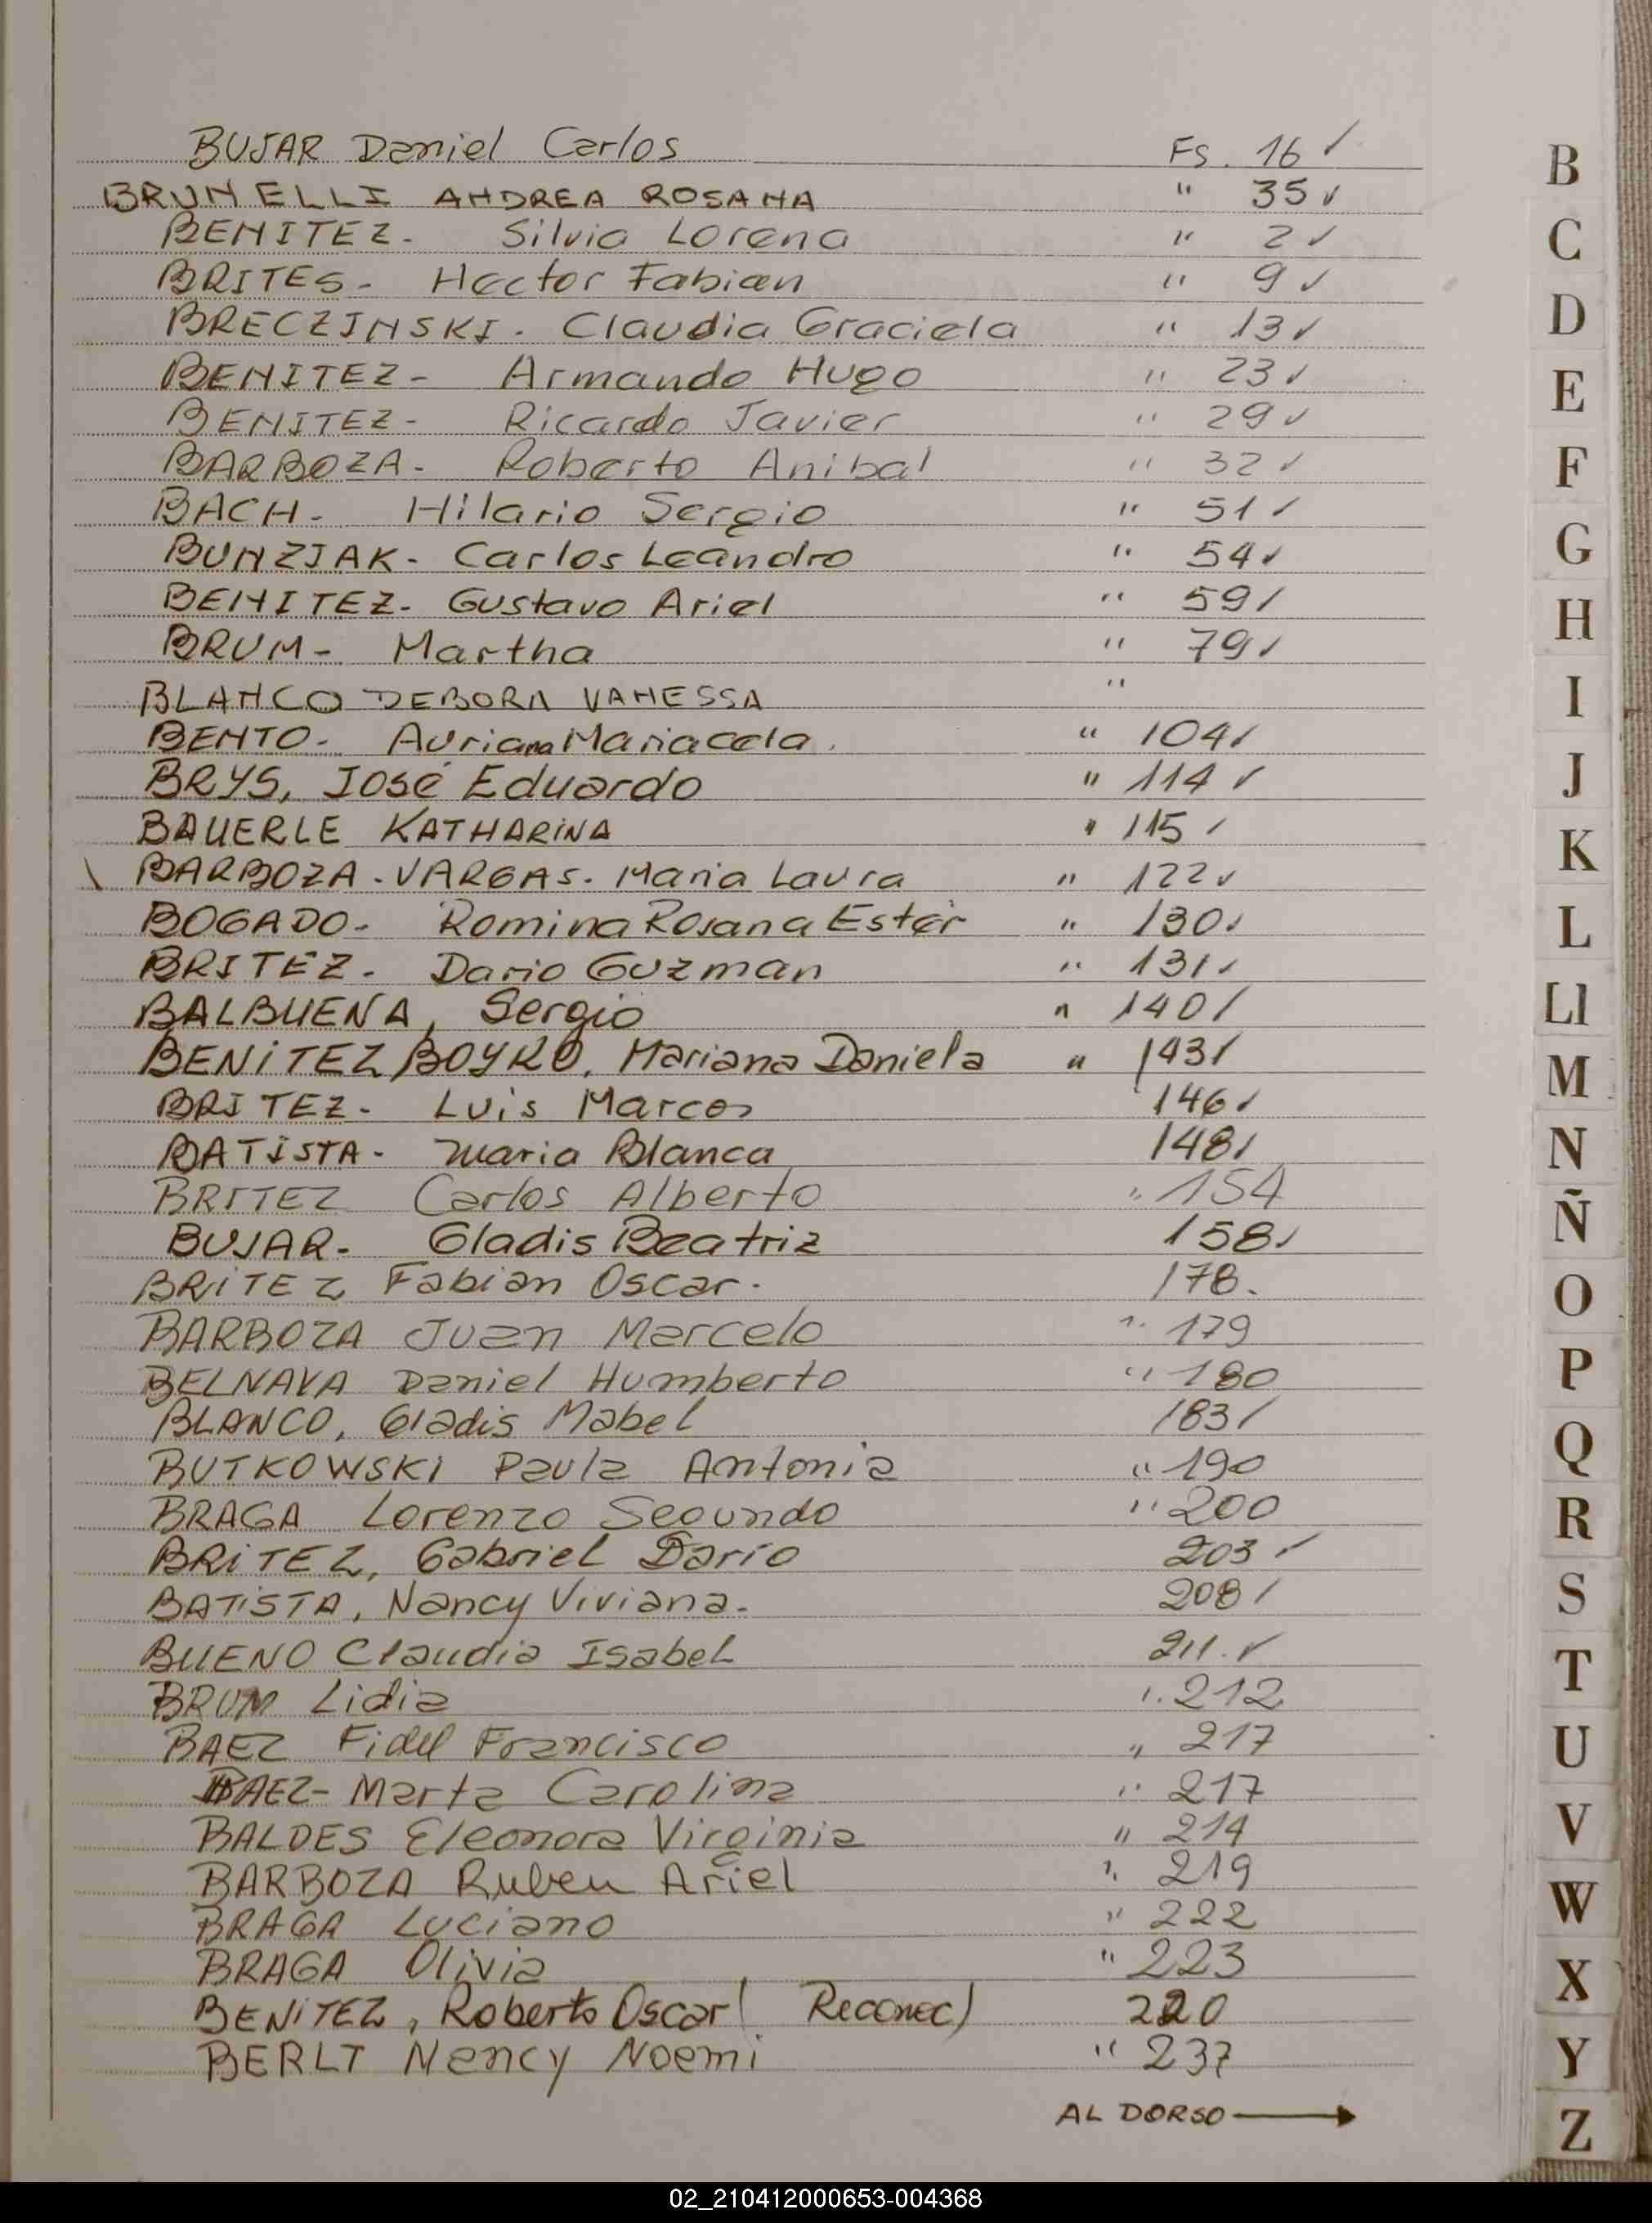 BUJAR Daniel Carlos Fs. 16 ✓
BRUNELLI ANDREA ROSANA " 35 ✓
BENITEZ. Silvia Lorena " 2 ✓
BRITES - Hector Fabian " 9 ✓
BRECZINSKI. Claudia Graciela " 13 ✓
BENITEZ - Armando Hugo " 23 ✓
BENITEZ - Ricardo Javier " 29 ✓
BARBOZA - Roberto Anibal " 32 ✓
BACH - Hilario Sergio " 51 ✓
BUNZJAK - Carlos Leandro " 54 ✓
BENITEZ - Gustavo Ariel " 59 ✓
BRUM - Martha " 79 ✓
BLANCO DEBORA VANESSA "
BENTO - Mariacela. " 104 ✓
BRYS, José Eduardo " 114 ✓
BAUERLE KATHARINA " 115 ✓
\ BARBOZA - VARGAS. Maria Laura " 122 ✓
BOGADO - Romina Rosana Ester " 130 ✓
BRITEZ - Dario Guzman " 131 ✓
BALBUENA, Sergio " 140 ✓
BENITEZ BOYKO, Mariana Daniela " 143 ✓
BRITEZ - Luis Marcos 146 ✓
BATISTA - Maria Blanca 148 ✓
BRITEZ Carlos Alberto " 154
BUJAR - Gladis Beatriz 158 ✓
BRITEZ Fabian Oscar. 178.
BARBOZA Juan Marcelo " 179
BELNAVA Daniel Humberto " 180
BLANCO, Gladis Mabel 183 ✓
BUTKOWSKI Paula Antonia " 190
BRAGA Lorenzo Segundo " 200
BRITEZ, Gabriel Darío 203 ✓
BATISTA, Nancy Viviana. 208 ✓
BUENO Claudia Isabel 211. ✓
BRUM Lidia " 212
BAEZ Fidel Francisco " 217
BAEZ - Marta Carolina " 217
BALDES Eleonora Virginia " 214
BARBOZA Ruben Ariel " 219
BRAGA Luciano " 222
BRAGA Olivia " 223
BENITEZ, Roberto Oscar ( Reconec) 220
BERLT Nancy Noemi " 237
AL DORSO →
B
C
D
E
F
G
H
I
J
K
L
Ll
M
N
Ñ
O
P
Q
R
S
T
U
V
W
X
Y
Z
02_210412000653-004368